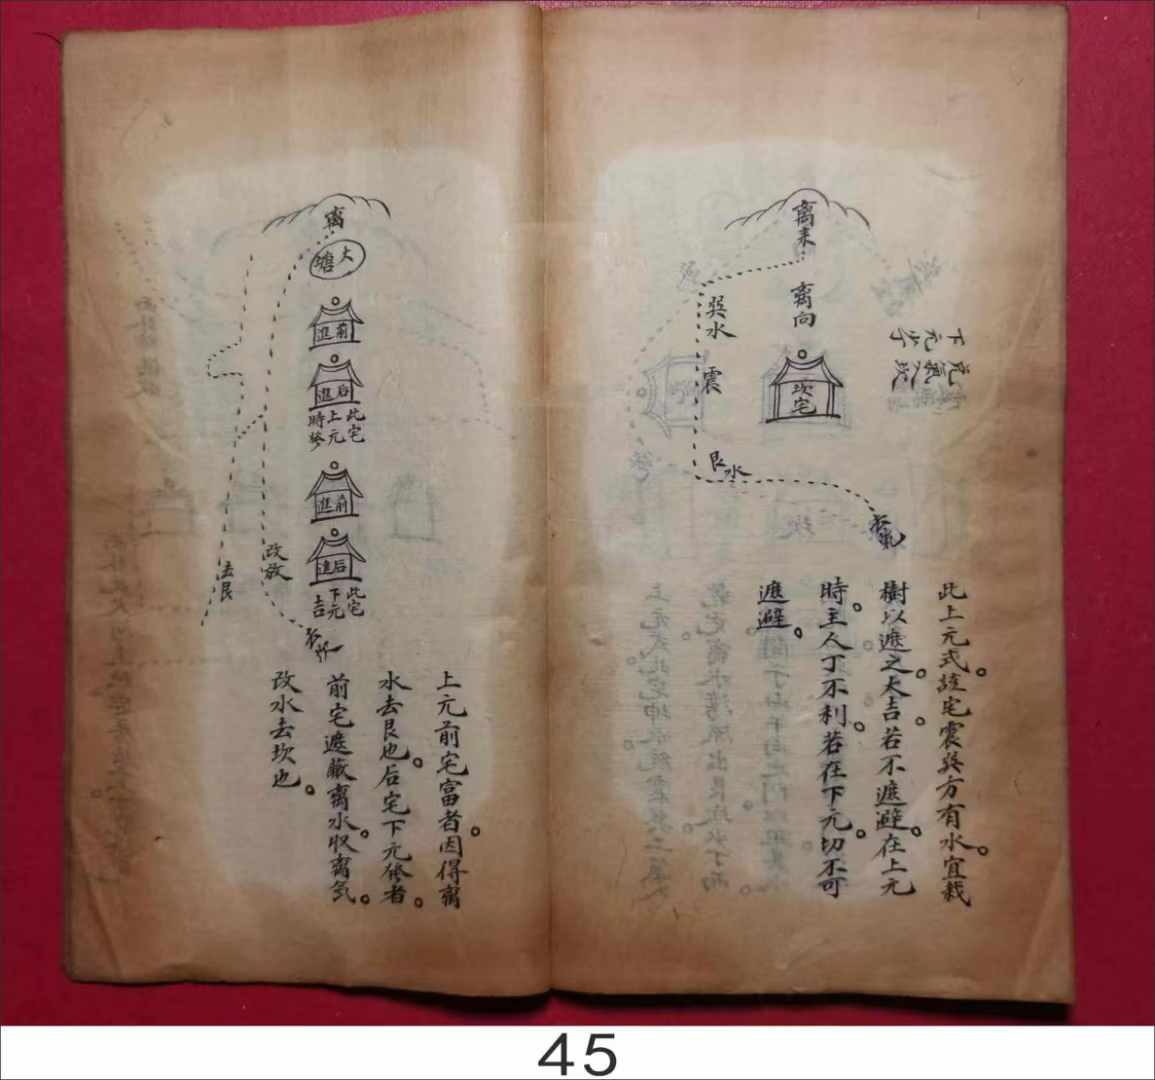 離來
離向
坎宅
巽水
震
艮水
下元坐
兌氣入坎
此上元式註宅震巽方有水宜栽
樹以遮之大吉若不遮避在上元
時主人丁不利若在下元切不可
遮避
離
大塘
前進
后進
此宅
上元
時發
前進
后進
此宅
下元
吉
改放
去艮
上元前宅富者因得离
水去艮也后宅下元修者
前宅遮蔽离水收离氣
改水去坎也
45